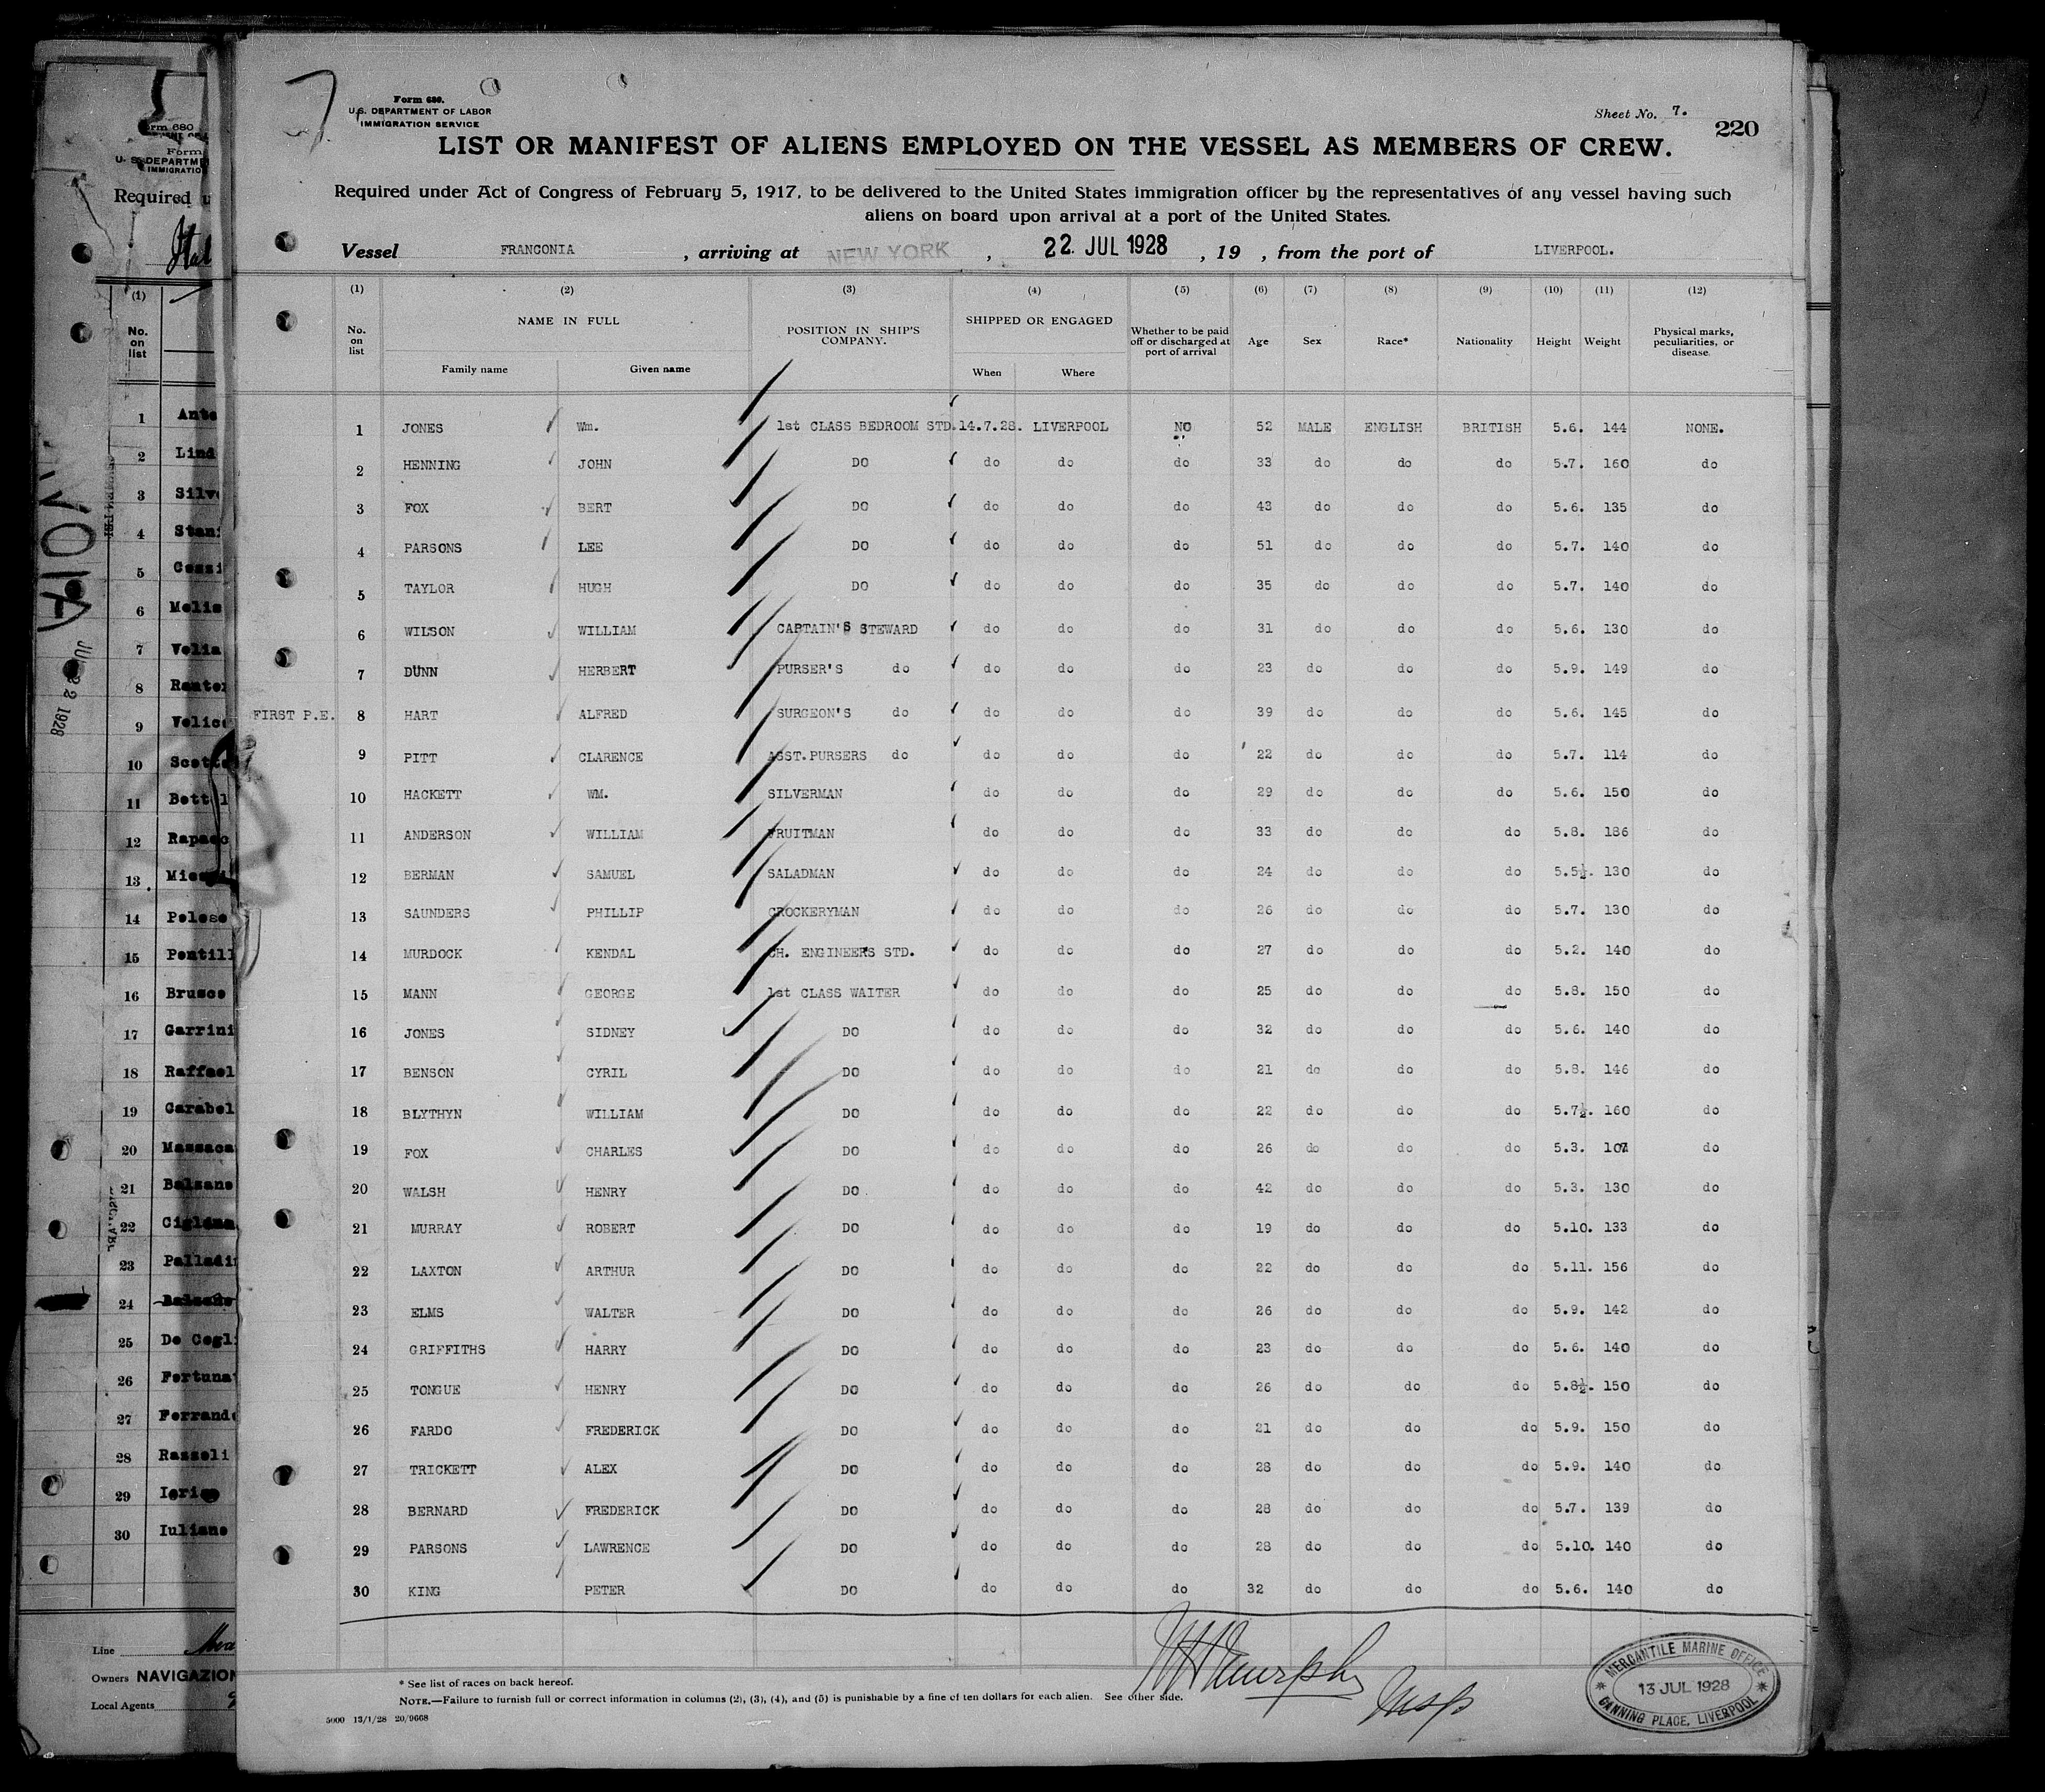 Form 680.
U.S. DEPARTMENT OF LABOR
IMMIGRATION SERVICE
Sheet No. 7.
220
LIST OR MANIFEST OF ALIENS EMPLOYED ON THE VESSEL AS MEMBERS OF CREW.
Required under Act of Congress of February 5, 1917, to be delivered to the United States immigration officer by the representatives of any vessel having such
aliens on board upon arrival at a port of the United States.
Vessel FRANCONIA , arriving at NEW YORK , 22 JUL 1928 , 19 , from the port of LIVERPOOL.
(1) (2) (3) (4) (5) (6) (7) (8) (9) (10) (11) (12)
No. on list NAME IN FULL Family name Given name POSITION IN SHIP'S COMPANY. SHIPPED OR ENGAGED When Where Whether to be paid off or discharged at port of arrival Age Sex Race* Nationality Height Weight Physical marks, peculiarities, or disease.
1 JONES Wm. 1st CLASS BEDROOM STD. 14.7.28. LIVERPOOL NO 52 MALE ENGLISH BRITISH 5.6. 144 NONE.
2 HENNING JOHN DO do do do 33 do do do 5.7. 160 do
3 FOX BERT DO do do do 43 do do do 5.6. 135 do
4 PARSONS LEE DO do do do 51 do do do 5.7. 140 do
5 TAYLOR HUGH DO do do do 35 do do do 5.7. 140 do
6 WILSON WILLIAM CAPTAIN'S STEWARD do do do 31 do do do 5.6. 130 do
7 DUNN HERBERT PURSER'S do do do do 23 do do do 5.9. 149 do
FIRST P.E. 8 HART ALFRED SURGEON'S do do do do 39 do do do 5.6. 145 do
9 PITT CLARENCE ASST.PURSERS do do do do 22 do do do 5.7. 114 do
10 HACKETT WM. SILVERMAN do do do 29 do do do 5.6. 150 do
11 ANDERSON WILLIAM FRUITMAN do do do 33 do do do 5.8. 186 do
12 BERMAN SAMUEL SALADMAN do do do 24 do do do 5.5½. 130 do
13 SAUNDERS PHILLIP CROCKERYMAN do do do 26 do do do 5.7. 130 do
14 MURDOCK KENDAL CH. ENGINEERS STD. do do do 27 do do do 5.2. 140 do
15 MANN GEORGE 1st CLASS WAITER do do do 25 do do do 5.8. 150 do
16 JONES SIDNEY DO do do do 32 do do do 5.6. 140 do
17 BENSON CYRIL DO do do do 21 do do do 5.8. 146 do
18 BLYTHYN WILLIAM DO do do do 22 do do do 5.7½. 160 do
19 FOX CHARLES DO do do do 26 do do do 5.3. 107 do
20 WALSH HENRY DO do do do 42 do do do 5.3. 130 do
21 MURRAY ROBERT DO do do do 19 do do do 5.10. 133 do
22 LAXTON ARTHUR DO do do do 22 do do do 5.11. 156 do
23 ELMS WALTER DO do do do 26 do do do 5.9. 142 do
24 GRIFFITHS HARRY DO do do do 23 do do do 5.6. 140 do
25 TONGUE HENRY DO do do do 26 do do do 5.8½. 150 do
26 FARDO FREDERICK DO do do do 21 do do do 5.9. 150 do
27 TRICKETT ALEX DO do do do 28 do do do 5.9. 140 do
28 BERNARD FREDERICK DO do do do 28 do do do 5.7. 139 do
29 PARSONS LAWRENCE DO do do do 28 do do do 5.10. 140 do
30 KING PETER DO do do do 32 do do do 5.6. 140 do
* See list of races on back hereof.
NOTE.—Failure to furnish full or correct information in columns (2), (3), (4), and (5) is punishable by a fine of ten dollars for each alien. See other side.
5000 13/1/28 20/9668
Murphy
Insp
MERCANTILE MARINE OFFICE
13 JUL 1928
CANNING PLACE, LIVERPOOL
Form 680
Required
(1)
No. on list
1
2
3
4
5
6
7
8
9
10
11
12
13
14
15
16 Brusco
17
18
19
20
21
22
23
24
25
26
27
28 Rasseli
29
30 Iuliano
Line
Owners NAVIGAZION
Local Agents